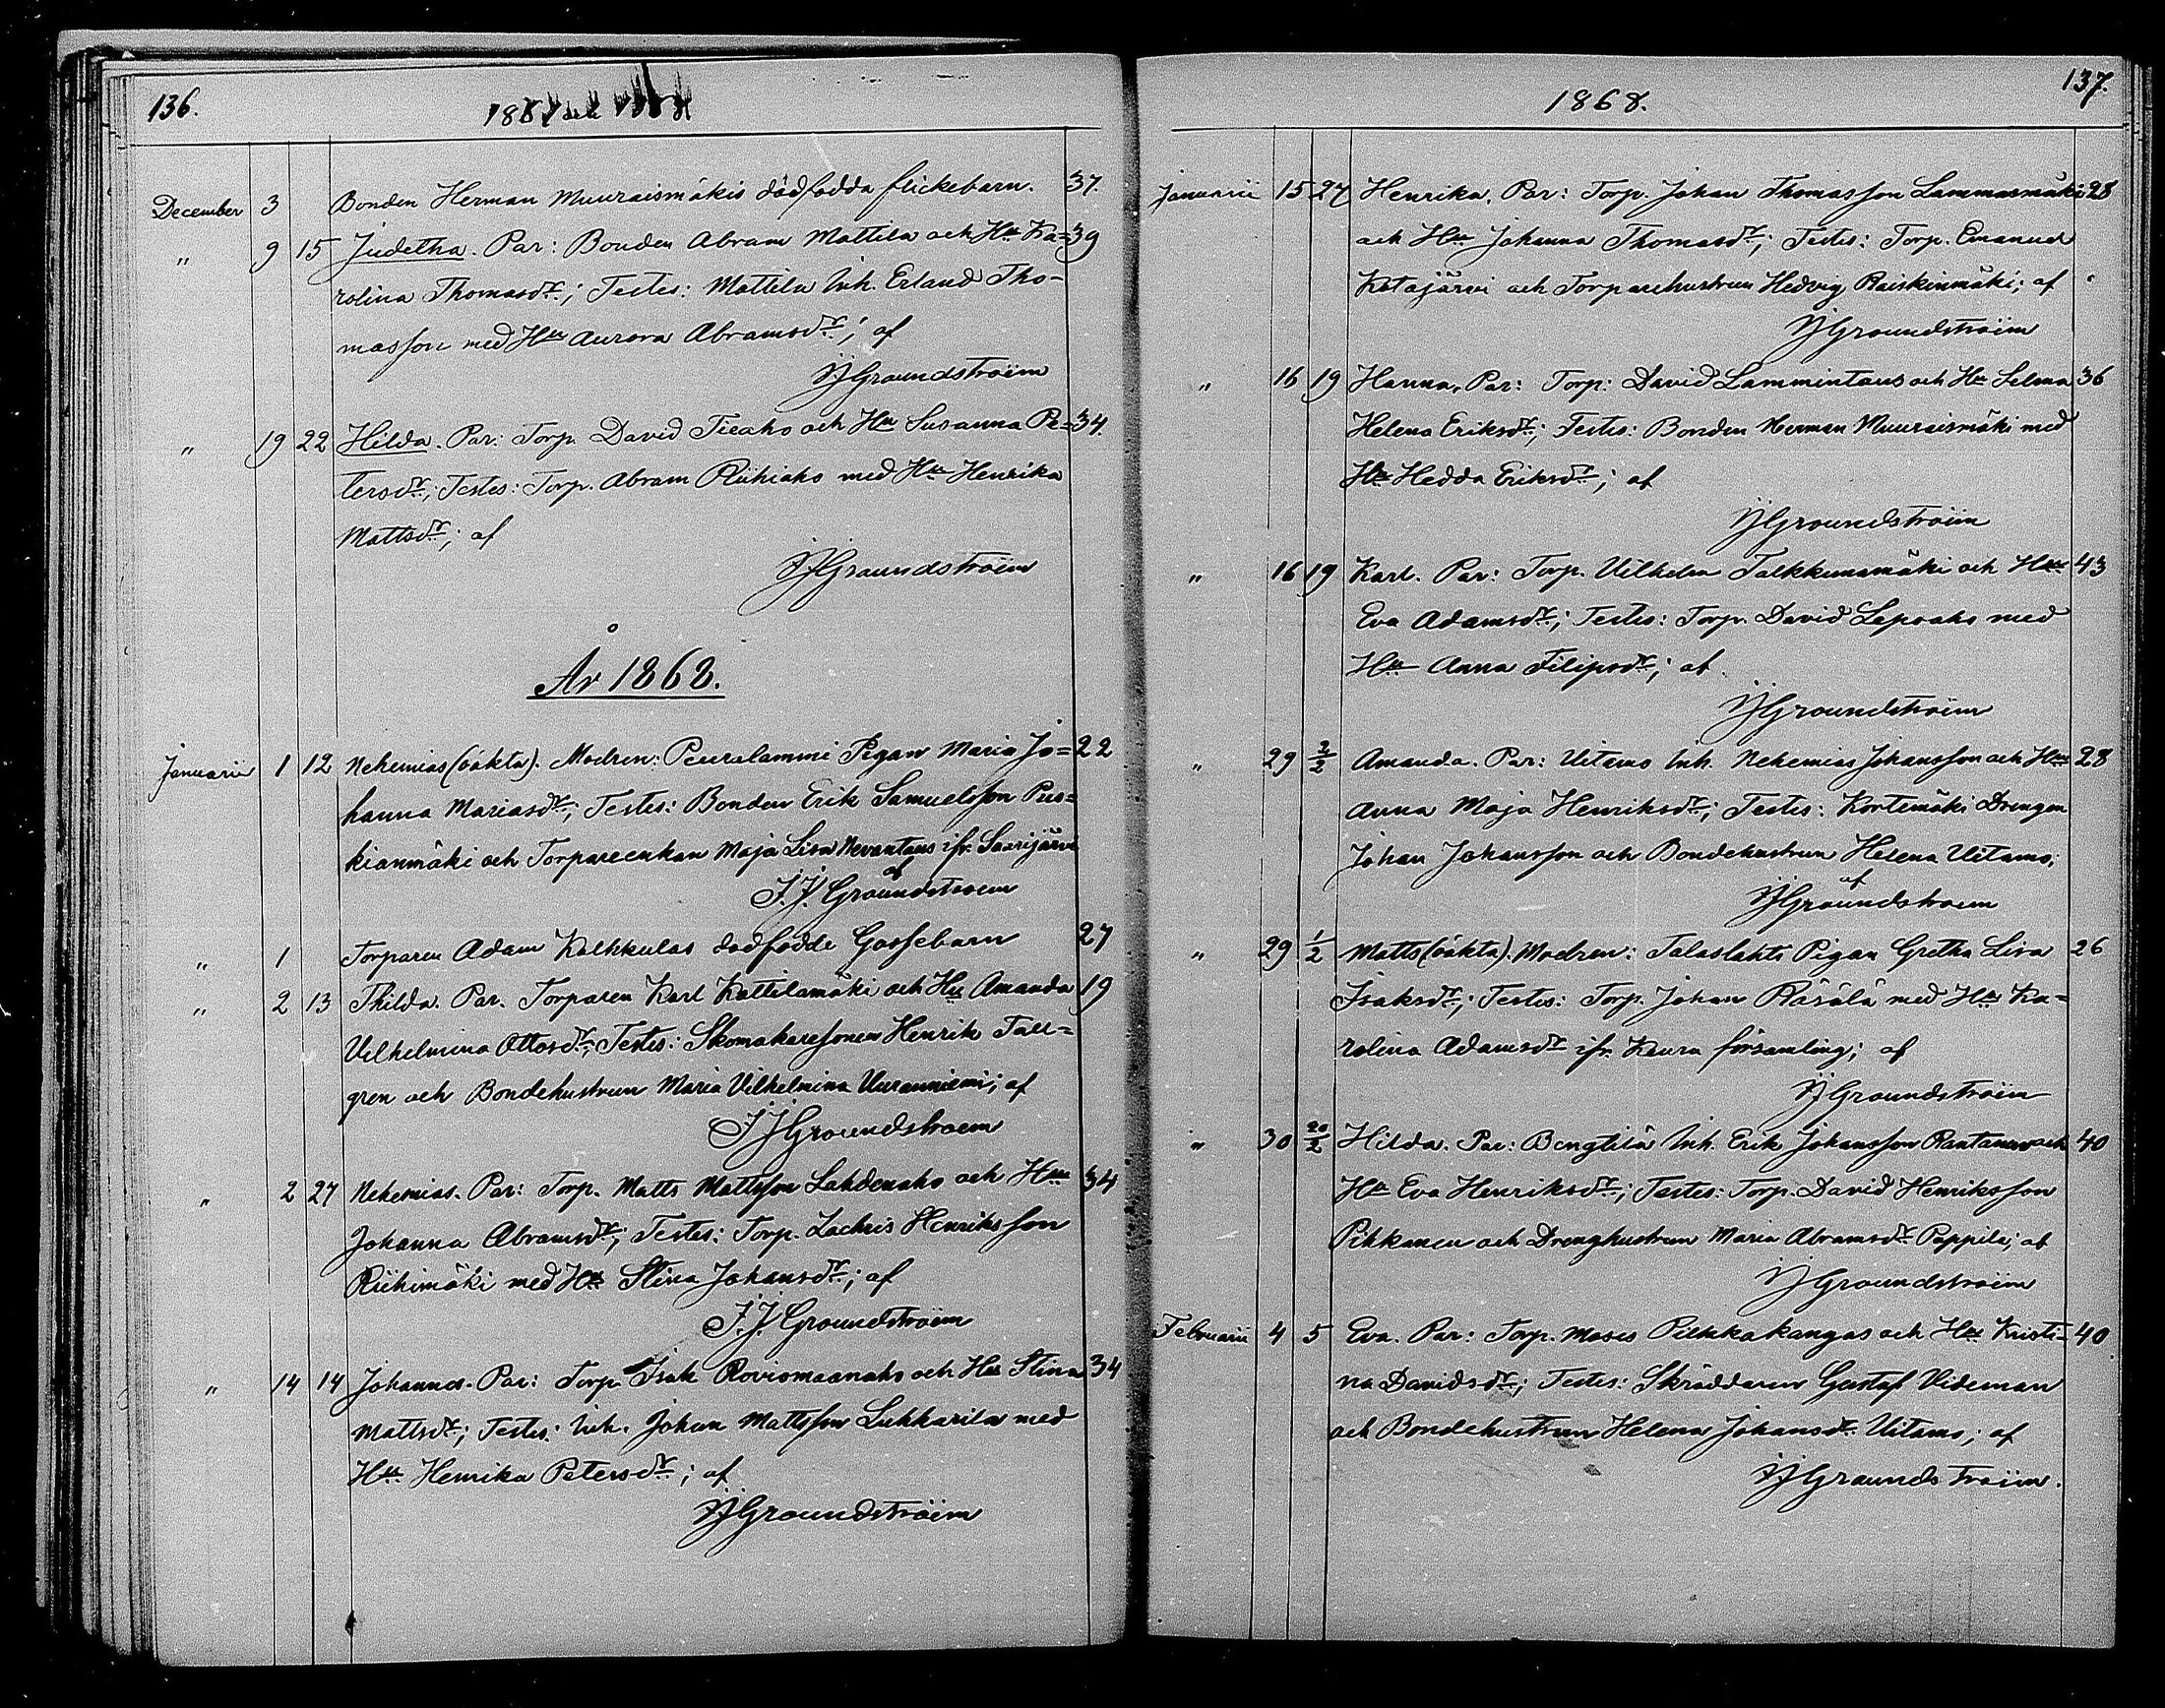 136.
December 3 Bonden Herman Muuraismäkis dödfödda flickebarn. 37.
" 9 15 Judetha. Par: Bonden Abram Mattila och Hu Ka= 39
rolina Thomasdr; Testes: Mattila Inh. Erland Tho-
masson med Hu Aurora Abramsdr; af
JJGroundstroëm
" 19 22 Hilda. Par: Torp. David Tieaho och Hu Susanna Pe= 34.
tersdr; Testes: Torp. Abram Riihiaho med Hu Henrika
Mattsdr; af
JJGroundstroëm
År 1868.
Januarii 1 12 Nehemias (oäkta). Modren: Peuralammi Pigan Maria Jo= 22
hanna Mariasdr; Testes: Bonden Erik Samuelsson Pus=
kianmäki och Torpareenkan Maja Lisa Nevantaus ifr. Saarijärvi
af
J.J. Groundstroem
" 1 Torparen Adam Kalkkulas dödfödde Gossebarn 27
" 2 13 Thilda. Par. Torparen Karl Kattilamäki och Hu Amanda 19
Vilhelmina Ottosdr; Testes: Skomakaresonen Henrik Tall=
gren och Bondehustrun Maria Vilhelmina Vuraunniemi; af
JJGroundstroem
" 2 27 Nehemias. Par: Torp. Matts Mattsson Lahdenaho och Hu 34
Johanna Abramsdr; Testes: Torp. Zachris Henriksson
Riihimäki med Hu Stina Johansdr; af
J.J. Groundstroëm
" 14 14 Johannes. Par: Torp. Isak Roviomaanaho och Hu Stina 34
Mattsdr; Testes: Inh. Johan Mattsson Lukkarila med
Hu Henrika Petersdr; af
JJGroundstroëm
1868. 137.
Januarii 15 27 Henrika, Par: Torp. Johan Thomasson Lammasmäki 28
och Hu Johanna Thomasdr; Testes: Torp. Emanuel
Kotajärvi och Torparehustrun Hedvig Raiskinmäki; af
JJGroundstroëm
" 16 19 Hanna, Par: Torp: David Lammintaus och Hu Selma 36
Helena Eriksdr; Testes: Bonden Herman Muuraismäki med
Hu Hedda Eriksdr; af
JJGroundstroëm
" 16 19 Karl. Par: Torp. Vilhelm Talkkunamäki och Hu 43
Eva Adamsdr; Testes: Torp. David Lepoaho med
Hu Anna Filipsdr; af
JJGroundstroëm
" 29 2/2 Amanda. Par: Uitamo Inh. Nehemias Johansson och Hu 28
Anna Maja Henriksdr; Testes: Kortemäki Drengen
Johan Johansson och Bondehustrun Helena Uitamo;
af
JJGroundstroem
" 29 1/2 Matts (oäkta). Modren: Talaslahti Pigan Gretha Lisa 26
Isaksdr; Testes: Torp. Johan Räsälä med Hu Ka=
rolina Adamsdr ifr. Keuru församling; af
JJGroundstroëm
" 30 20/2 Hilda. Par: Bengtilä Inh. Erik Johansson Rantanen och 40
Hu Eva Henriksdr; Testes: Torp. David Henriksson
Pihkanen och Drenghustrun Maria Abramsdr Pappila; af
JJGroundstroëm
Februarii 4 5 Eva. Par: Torp. Moses Pilkkakangas och Hu Kristi= 40
na Davidsdr; Testes: Skräddaren Gustaf Videman
och Bondehustrun Helena Johansdr. Uitamo; af
JJGroundstroëm.